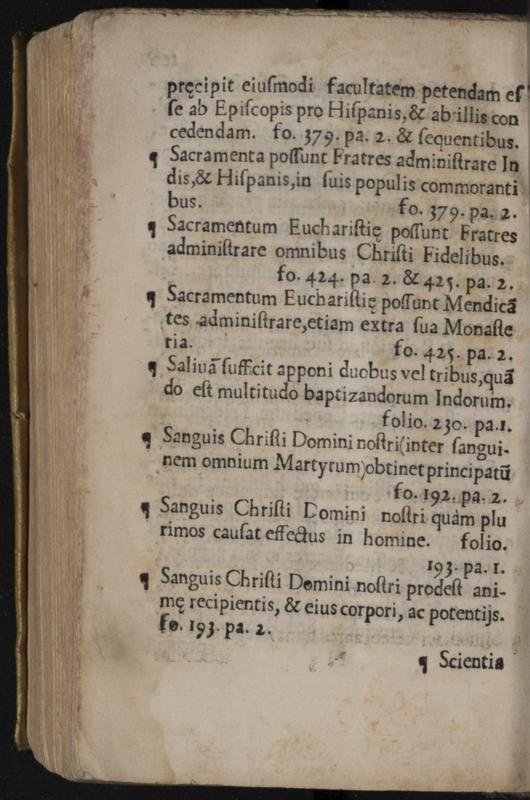 pręcipit eiuſmodi facultatem petendam eſ
ſe ab Epiſcopis pro Hiſpanis,& ab illis con
cedendam. fo. 379. pa. 2. & ſequentibus.
¶ Sacramenta poſſunt Fratres adminiſtrare In
dis,& Hiſpanis,in ſuis populis commoranti
bus. fo. 379. pa. 2.
¶ Sacramentum Euchariſtię poſſunt Fratres
adminiſtrare omnibus Chriſti Fidelibus.
fo. 424. pa. 2. & 425. pa. 2.
¶ Sacramentum Euchariſtię poſſunt Mendicã
tes adminiſtrare,etiam extra ſua Monaſte
ria. fo. 425. pa. 2.
¶ Saliuã ſufficit apponi duobus vel tribus,quã
do eſt multitudo baptizandorum Indorum.
folio. 230. pa.1.
¶ Sanguis Chriſti Domini noſtri(inter ſangui-
nem omnium Martyrum)obtinet principatũ
fo. 192. pa. 2.
¶ Sanguis Chriſti Domini noſtri quàm plu
rimos cauſat effectus in homine. folio.
193. pa. 1.
¶ Sanguis Chriſti Domini noſtri prodeſt ani-
mę recipientis, & eius corpori, ac potentijs.
fo. 193. pa. 2.
¶ Scientia